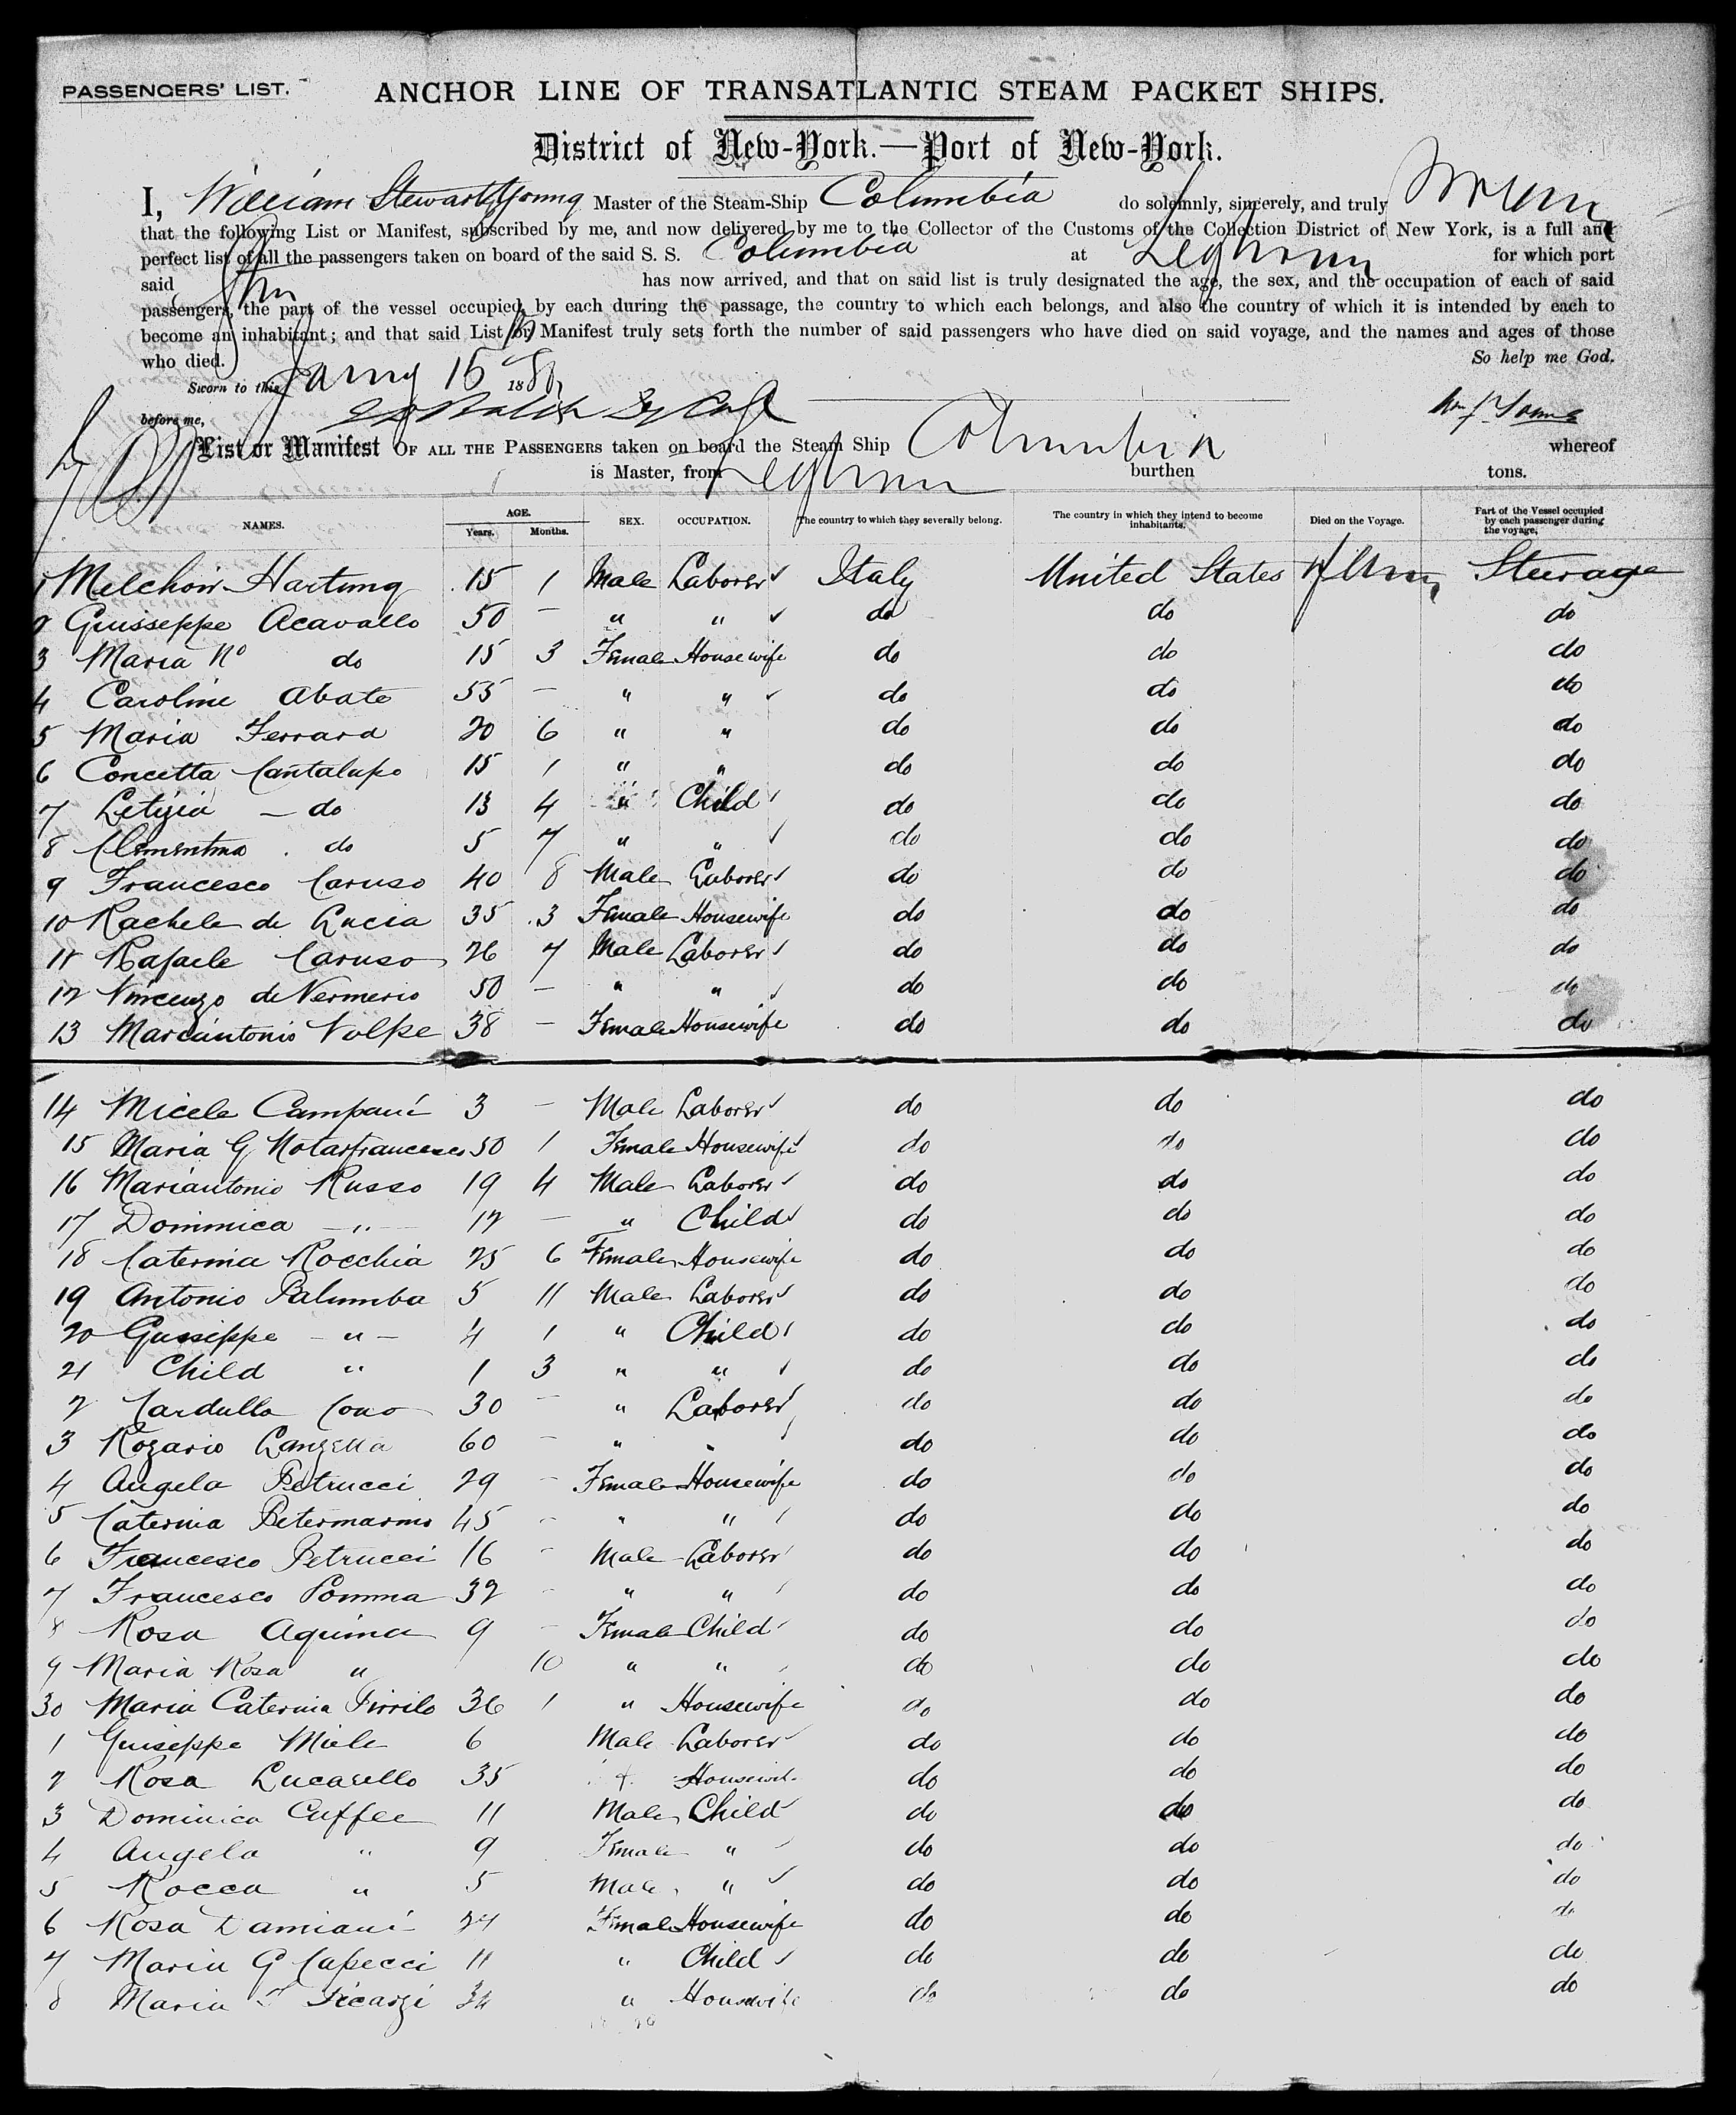 PASSENGERS' LIST.
ANCHOR LINE OF TRANSATLANTIC STEAM PACKET SHIPS.
District of New-York.—Port of New-York.
I, William Stewart Young Master of the Steam-Ship Columbia do solemnly, sincerely, and truly swear
that the following List or Manifest, subscribed by me, and now delivered by me to the Collector of the Customs of the Collection District of New York, is a full and
perfect list of all the passengers taken on board of the said S. S. Columbia at Leghorn for which port
said has now arrived, and that on said list is truly designated the age, the sex, and the occupation of each of said
passengers, the part of the vessel occupied by each during the passage, the country to which each belongs, and also the country of which it is intended by each to
become an inhabitant; and that said List or Manifest truly sets forth the number of said passengers who have died on said voyage, and the names and ages of those
who died. So help me God.
Sworn to this 15 18
before me,
List or Manifest OF ALL THE PASSENGERS taken on board the Steam Ship Columbia whereof
is Master, from Leghorn burthen tons.
NAMES. AGE. Years. Months. SEX. OCCUPATION. The country to which they severally belong. The country in which they intend to become inhabitants. Died on the Voyage. Part of the Vessel occupied by each passenger during the voyage.
1 Melchoir Hartung 15 1 Male Laborer Italy United States Steerage
2 Guisseppe Acavallo 50 — " " do do do
3 Maria Nº do 15 3 Female Housewife do do do
4 Caroline Abate 55 — " " do do do
5 Maria Ferrara 20 6 " " do do do
6 Concetta Cantalupo 15 1 " " do do do
7 Letizia — do 13 4 " Child do do do
8 Clementina do 5 7 " " do do do
9 Francesco Caruso 40 8 Male Laborer do do do
10 Rachele de Lucia 35 3 Female Housewife do do do
11 Rafaele Caruso 26 7 Male Laborer do do do
12 Vincenzo de Vermerio 50 — " " do do do
13 Marciantonio Volpe 38 — Female Housewife do do do
14 Micele Campani 3 — Male Laborer do do do
15 Maria G Notarfrancesco 50 1 Female Housewife do do do
16 Mariantonio Russo 19 4 Male Laborer do do do
17 Dominica — " — 12 — " Child do do do
18 Caterina Rocchia 25 6 Female Housewife do do do
19 Antonio Palumba 5 11 Male Laborer do do do
20 Guseippe — " — 4 1 " Child do do do
21 Child " 1 3 " " do do do
2 Cardullo Cono 30 — " Laborer do do do
3 Rozario Lanzella 60 — " " do do do
4 Angela Petrucci 29 — Female Housewife do do do
5 Caterina Petermarmo 45 - " " do do do
6 Francesco Petrucci 16 - Male Laborer do do do
7 Francesco Pomma 32 - " " do do do
8 Rosa Aquima 9 - Female Child do do do
9 Maria Rosa " 10 " " do do do
30 Maria Caterina Pirrilo 36 1 " Housewife do do do
1 Guiseppe Miele 6 Male Laborer do do do
2 Rosa Lucarello 35 f. Housewife do do do
3 Dominica Cuffee 11 Male Child do do do
4 Angela " 9 Female " do do do
5 Rocca " 5 Male " do do do
6 Rosa Damiani 24 Female Housewife do do do
7 Maria G Capecci 11 " Child do do do
8 Maria Ficarzi 34 " Housewife do do do